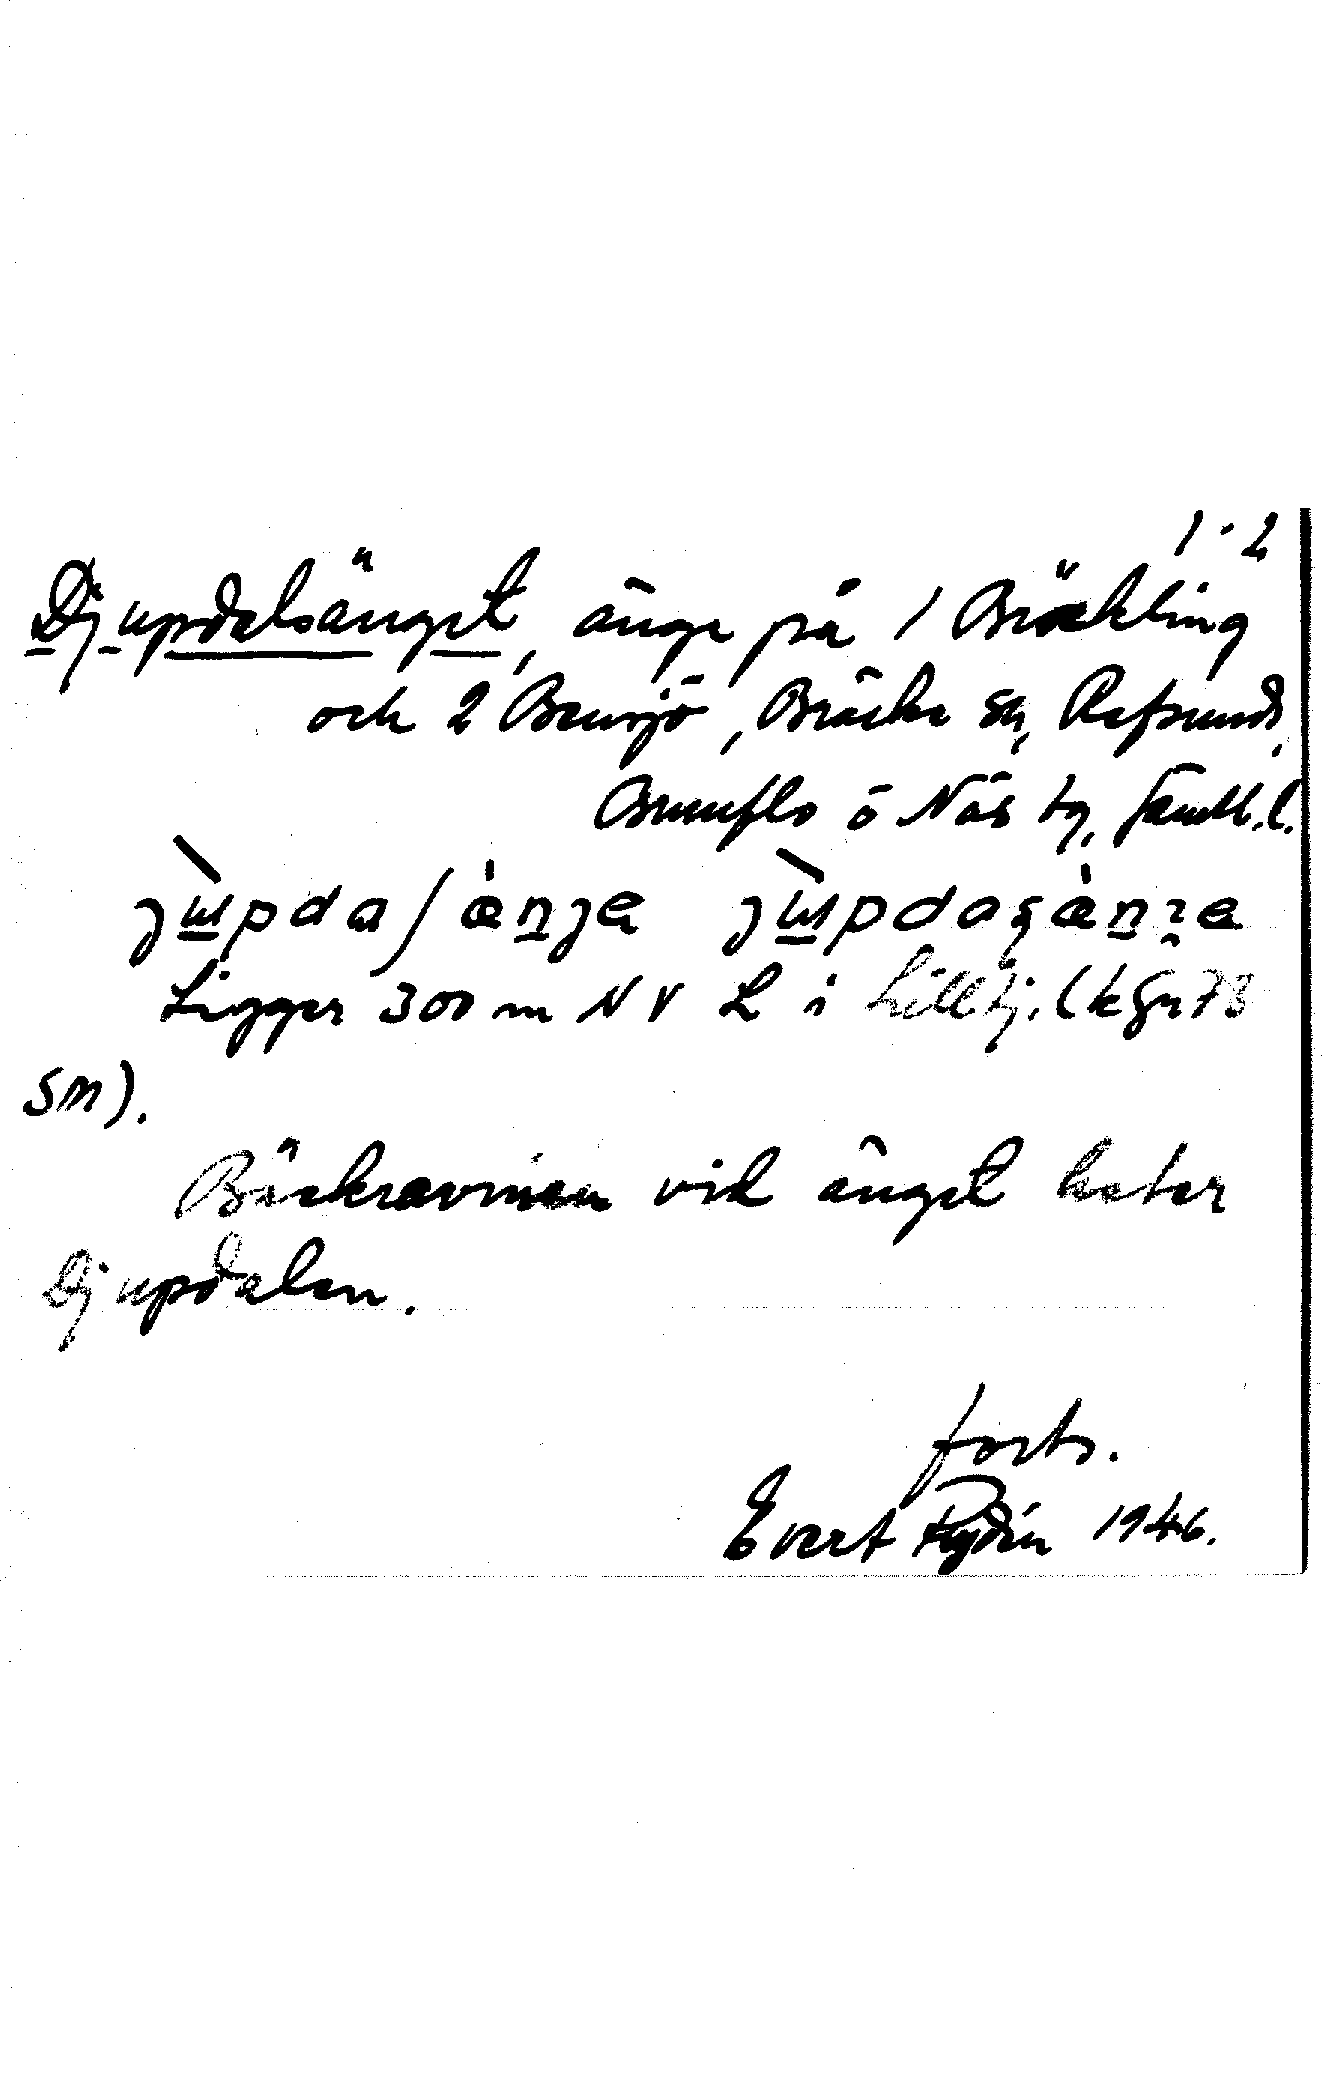 1-2
Djupdalsänget, änge på 1 Bräckling
och 2 Bensjö, Bräcke sn, Refsund,
Brunflo o Näs tg, Jämtl. l.
Ligger 300 m NV L i Lilltj. (k Gn 73
SM).
Bäckravinen vid änget heter
Djupdalen.
forts.
Evert Rydén 1946.